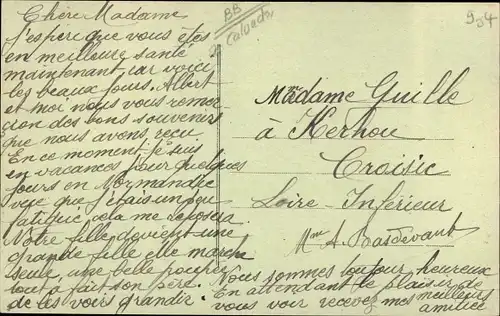 Chère Madame
J'espère que vous êtes
en meilleure santé
maintenant, car voici
les beaux jours. Albert
et moi nous vous remer-
cions des bons souvenirs
que nous avons reçu
En ce moment je suis
en vacances pour quelques
jours en Normandie
que j'étais un peu
fatiguée, cela me reposera
Notre fille devient une
grande fille elle marche
seule, une belle
tout à fait son père.
de les voirs grandir.
Nous sommes toujour heureux
En attendant le plaisir de
vous voir recevez mes meilleurs
amitiés
BB
Calvados
934
Madame Guille
à Kerhou
Croisic
Loire-Inférieur
Mme A. Basdevant